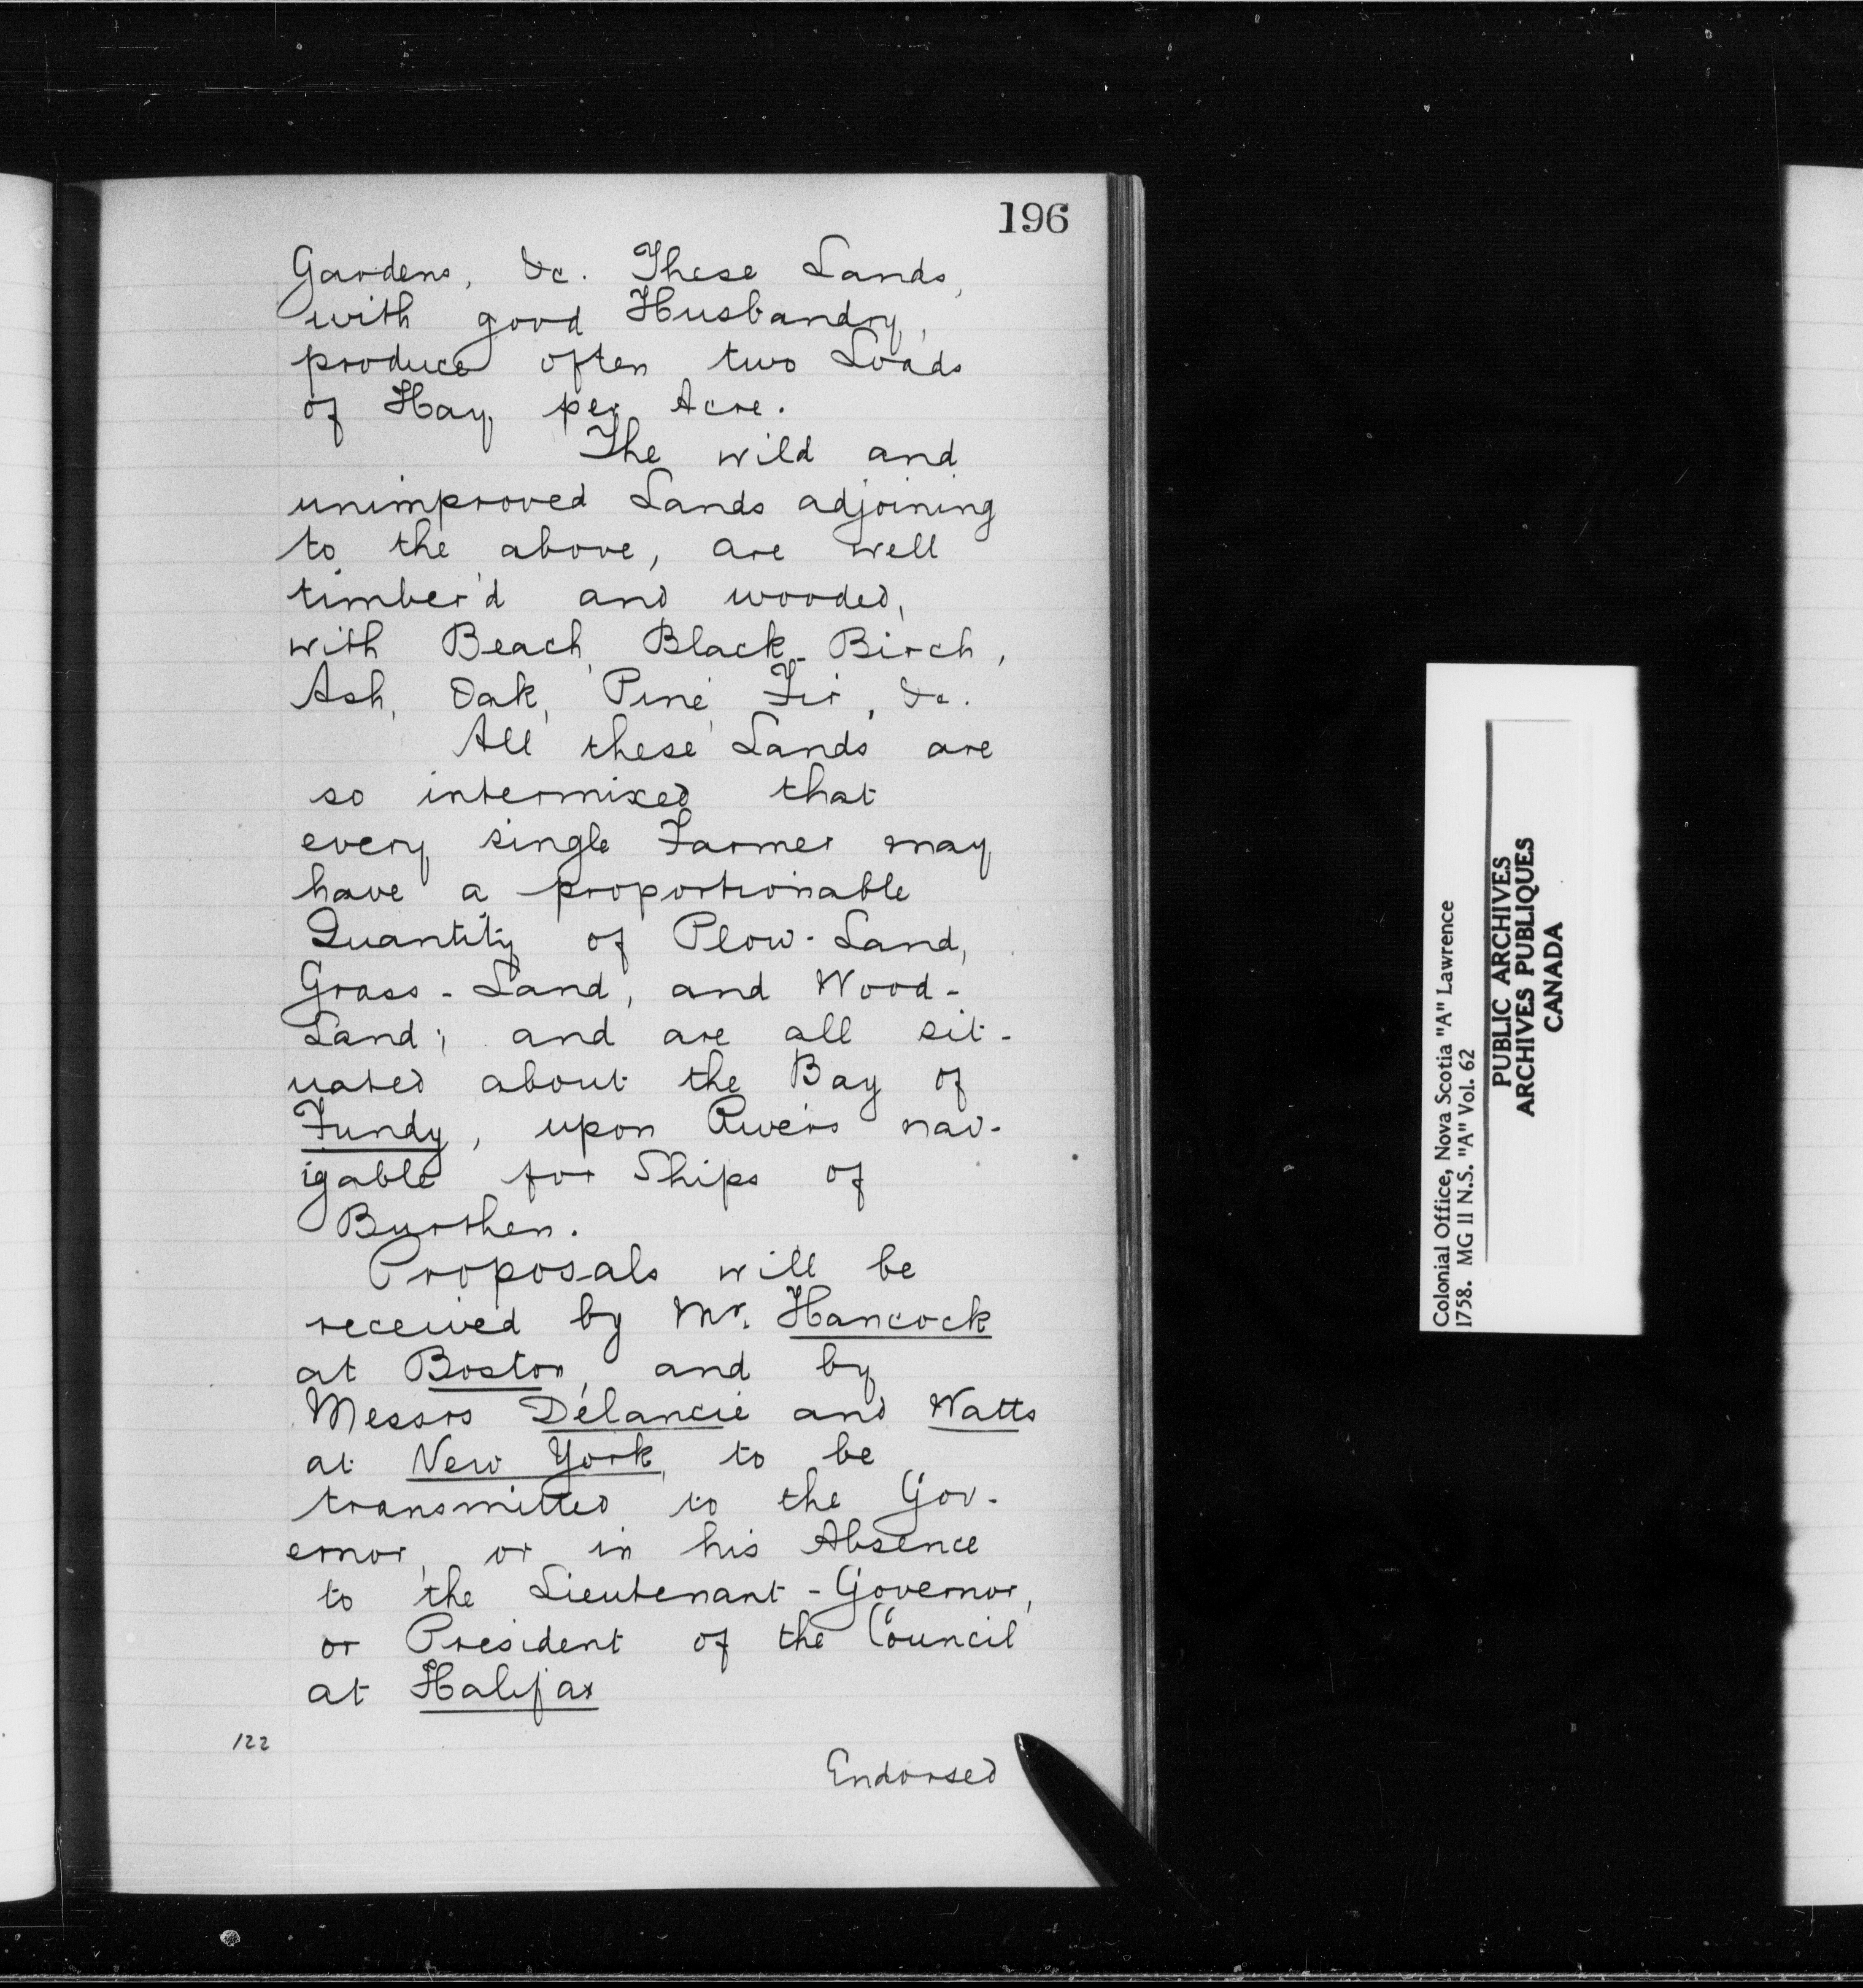 196
Gardens, &c. These Lands,
with good Husbandry,
produce often two Loads
of Hay per Acre.
The wild and
unimproved Lands adjoining
to the above, are well
timber'd and wooded,
with Beach, Black-Birch,
Ash, Oak, Pine, Fir, &c.
All these Lands are
so intermixed that
every single Farmer may
have a proportionable
Quantity of Plow-Land,
Grass-Land, and Wood-
Land; and are all sit-
uated about the Bay of
Fundy, upon Rivers nav-
igable for Ships of
Burthen.
Proposals will be
received by Mr. Hancock
at Boston, and by
Messrs Delancie and Watts
at New York, to be
transmitted to the Gov-
ernor, or in his Absence
to the Lieutenant-Governor,
or President of the Council
at Halifax
122
Endorsed
Colonial Office, Nova Scotia "A" Lawrence
1758. MG 11 N.S. "A" Vol. 62
PUBLIC ARCHIVES
ARCHIVES PUBLIQUES
CANADA